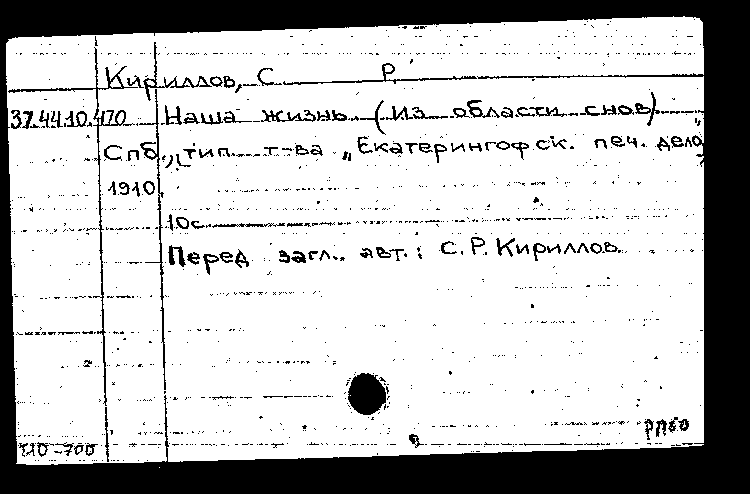 Кириллов, С. Р.
37.44.10.470 Наша жизнь. (Из области снов).
Спб., тип. т-ва „Екатерингофск. печ. дело",
1910.
10с.
Перед загл. авт.: С. Р. Кириллов.
рпбо
ц10-700